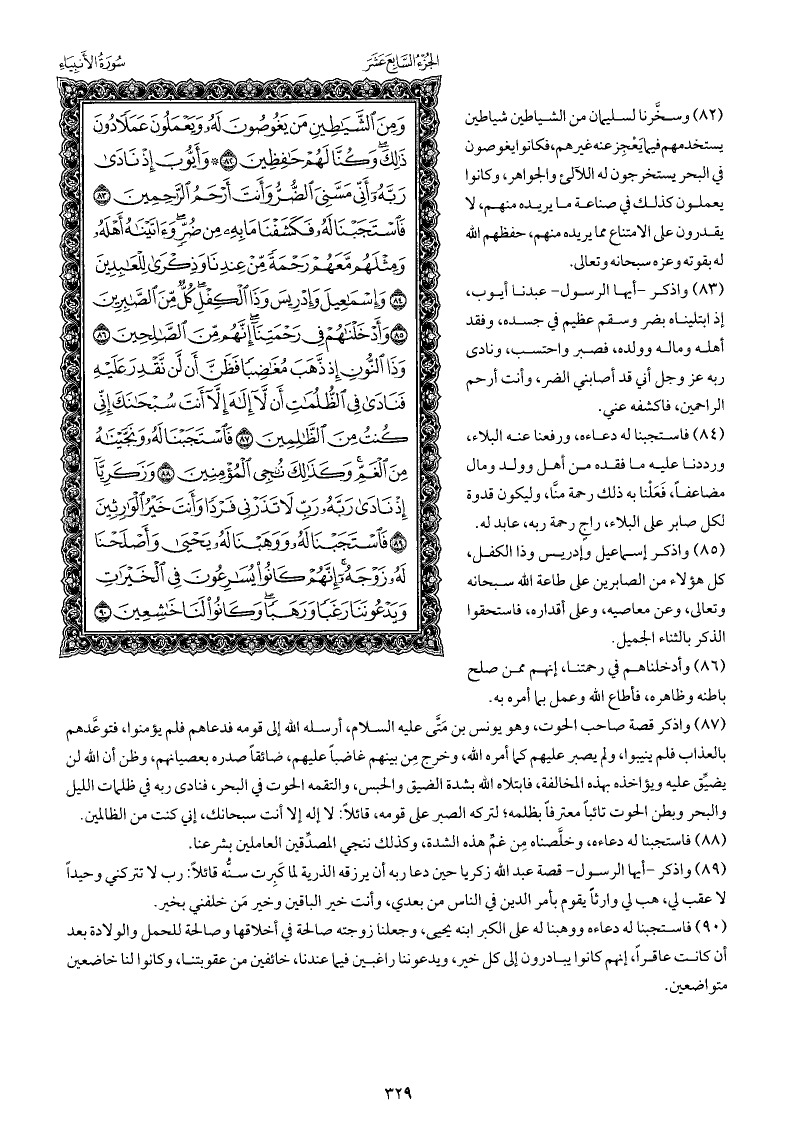 الجزء السابع عشر
سورة الأنبياء
وَمِنَ ٱلشَّيَٰطِينِ مَن يَغُوصُونَ لَهُۥ وَيَعْمَلُونَ عَمَلًا دُونَ
ذَٰلِكَ ۖ وَكُنَّا لَهُمْ حَٰفِظِينَ ٨٢ ۞ وَأَيُّوبَ إِذْ نَادَىٰ
رَبَّهُۥٓ أَنِّي مَسَّنِيَ ٱلضُّرُّ وَأَنتَ أَرْحَمُ ٱلرَّٰحِمِينَ ٨٣
فَٱسْتَجَبْنَا لَهُۥ فَكَشَفْنَا مَا بِهِۦ مِن ضُرٍّ ۖ وَءَاتَيْنَٰهُ أَهْلَهُۥ
وَمِثْلَهُم مَّعَهُمْ رَحْمَةً مِّنْ عِندِنَا وَذِكْرَىٰ لِلْعَٰبِدِينَ
٨٤ وَإِسْمَٰعِيلَ وَإِدْرِيسَ وَذَا ٱلْكِفْلِ ۖ كُلٌّ مِّنَ ٱلصَّٰبِرِينَ
٨٥ وَأَدْخَلْنَٰهُمْ فِي رَحْمَتِنَآ ۖ إِنَّهُم مِّنَ ٱلصَّٰلِحِينَ ٨٦
وَذَا ٱلنُّونِ إِذ ذَّهَبَ مُغَٰضِبًا فَظَنَّ أَن لَّن نَّقْدِرَ عَلَيْهِ
فَنَادَىٰ فِي ٱلظُّلُمَٰتِ أَن لَّآ إِلَٰهَ إِلَّآ أَنتَ سُبْحَٰنَكَ إِنِّي
كُنتُ مِنَ ٱلظَّٰلِمِينَ ٨٧ فَٱسْتَجَبْنَا لَهُۥ وَنَجَّيْنَٰهُ
مِنَ ٱلْغَمِّ ۚ وَكَذَٰلِكَ نُۨجِي ٱلْمُؤْمِنِينَ ٨٨ وَزَكَرِيَّآ
إِذْ نَادَىٰ رَبَّهُۥ رَبِّ لَا تَذَرْنِي فَرْدًا وَأَنتَ خَيْرُ ٱلْوَٰرِثِينَ
٨٩ فَٱسْتَجَبْنَا لَهُۥ وَوَهَبْنَا لَهُۥ يَحْيَىٰ وَأَصْلَحْنَا
لَهُۥ زَوْجَهُۥٓ ۚ إِنَّهُمْ كَانُوا۟ يُسَٰرِعُونَ فِي ٱلْخَيْرَٰتِ
وَيَدْعُونَنَا رَغَبًا وَرَهَبًا ۖ وَكَانُوا۟ لَنَا خَٰشِعِينَ ٩٠
(٨٢) وسخَّرنا لسليمان من الشياطين شياطين
يستخدمهم فيما يَعْجِز عنه غيرهم، فكانوا يغوصون
في البحر يستخرجون له اللآلئ والجواهر، وكانوا
يعملون كذلك في صناعة ما يريده منهم، لا
يقدرون على الامتناع مما يريده منهم، حفظهم الله
له بقوته وعزه سبحانه وتعالى.
(٨٣) واذكر -أيها الرسول- عبدنا أيوب،
إذ ابتليناه بضر وسقم عظيم في جسده، وفقد
أهله وماله وولده، فصبر واحتسب، ونادى
ربه عز وجل أني قد أصابني الضر، وأنت أرحم
الراحمين، فاكشفه عني.
(٨٤) فاستجبنا له دعاءه، ورفعنا عنه البلاء،
ورددنا عليه ما فقده من أهل وولد ومال
مضاعفاً، فَعَلْنا به ذلك رحمة منَّا، وليكون قدوة
لكل صابر على البلاء، راجٍ رحمة ربه، عابد له.
(٨٥) واذكر إسماعيل وإدريس وذا الكفل،
كل هؤلاء من الصابرين على طاعة الله سبحانه
وتعالى، وعن معاصيه، وعلى أقداره، فاستحقوا
الذكر بالثناء الجميل.
(٨٦) وأدخلناهم في رحمتنا، إنهم ممن صلح
باطنه وظاهره، فأطاع الله وعمل بما أمره به.
(٨٧) واذكر قصة صاحب الحوت، وهو يونس بن مَتَّى عليه السلام، أرسله الله إلى قومه فدعاهم فلم يؤمنوا، فتوعَّدهم
بالعذاب فلم ينيبوا، ولم يصبر عليهم كما أمره الله، وخرج مِن بينهم غاضباً عليهم، ضائقاً صدره بعصيانهم، وظن أن الله لن
يضيِّق عليه ويؤاخذه بهذه المخالفة، فابتلاه الله بشدة الضيق والحبس، والتقمه الحوت في البحر، فنادى ربه في ظلمات الليل
والبحر وبطن الحوت تائباً معترفاً بظلمه؛ لتركه الصبر على قومه، قائلاً: لا إله إلا أنت سبحانك، إني كنت من الظالمين.
(٨٨) فاستجبنا له دعاءه، وخلَّصناه مِن غَمِّ هذه الشدة، وكذلك ننجي المصدِّقين العاملين بشرعنا.
(٨٩) واذكر -أيها الرسول- قصة عبد الله زكريا حين دعا ربه أن يرزقه الذرية لما كَبِرت سنُّه قائلاً: رب لا تتركني وحيداً
لا عقب لي، هب لي وارثاً يقوم بأمر الدين في الناس من بعدي، وأنت خير الباقين وخير مَن خلفني بخير.
(٩٠) فاستجبنا له دعاءه ووهبنا له على الكبر ابنه يحيى، وجعلنا زوجته صالحة في أخلاقها وصالحة للحمل والولادة بعد
أن كانت عاقراً، إنهم كانوا يبادرون إلى كل خير، ويدعوننا راغبين فيما عندنا، خائفين من عقوبتنا، وكانوا لنا خاضعين
متواضعين.
٣٢٩